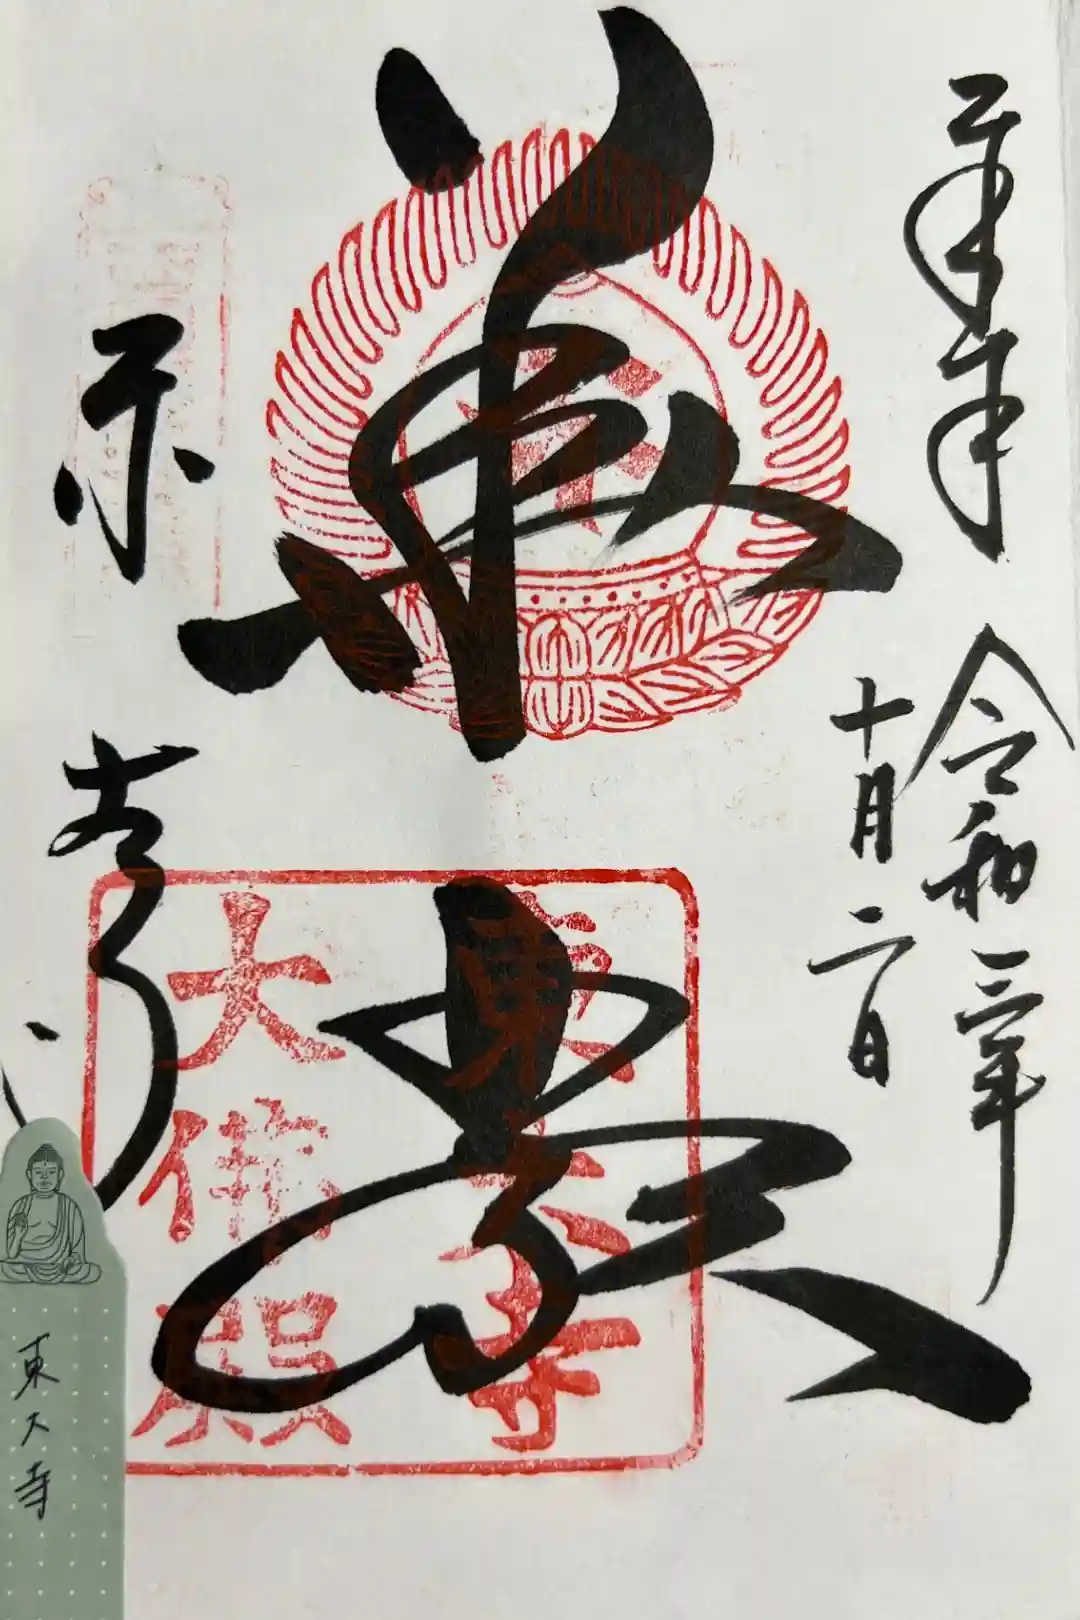 奉拝
令和三年
十月二日
華嚴
東大寺
東大寺
大佛殿
東大寺